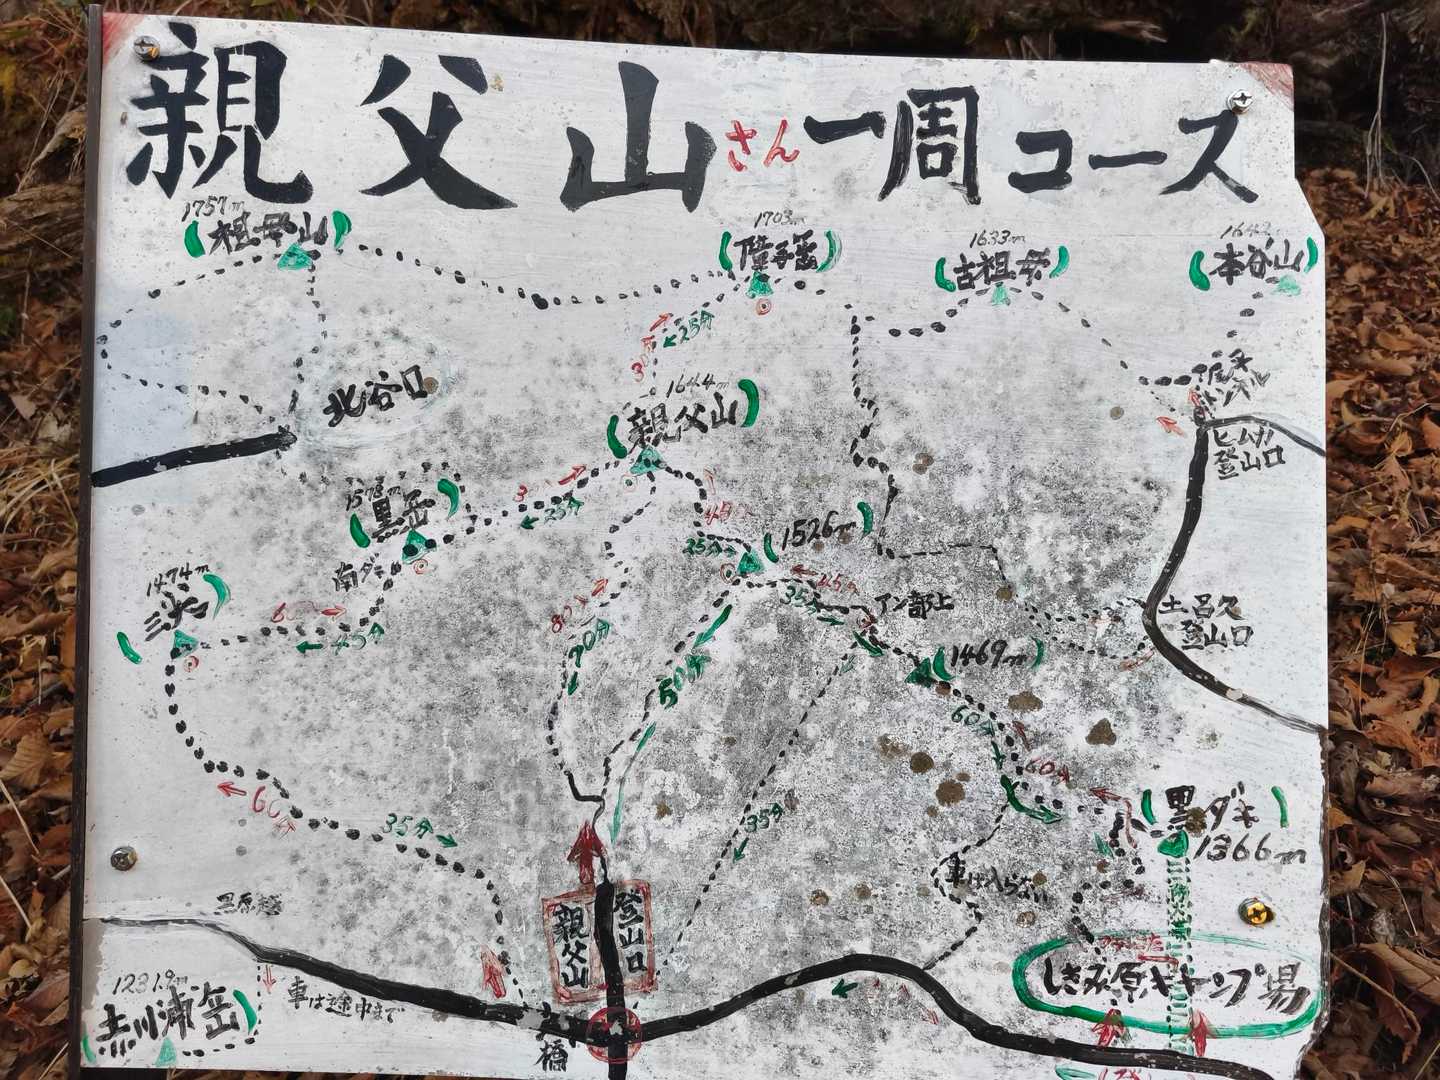 親父山さん一周コース
1757m
祖母山
1703m
障子岳
1633m
古祖母
1642m
本谷山
北谷口
25分
1644m
親父山
トンネル
登山口
1578m
黒岳
25分
45分
25分
1526m
南ダキ
1474m
三尖
60分
45分
80分
70分
45分
35分
アン部上
土呂久
登山口
1469m
50分
60分
60分
60分
35分
35分
黒ダキ
1366m
車は入らない
親父山
登山口
黒原越
車は途中まで
1231.9m
赤川浦岳
橋
しきみ原キャンプ場